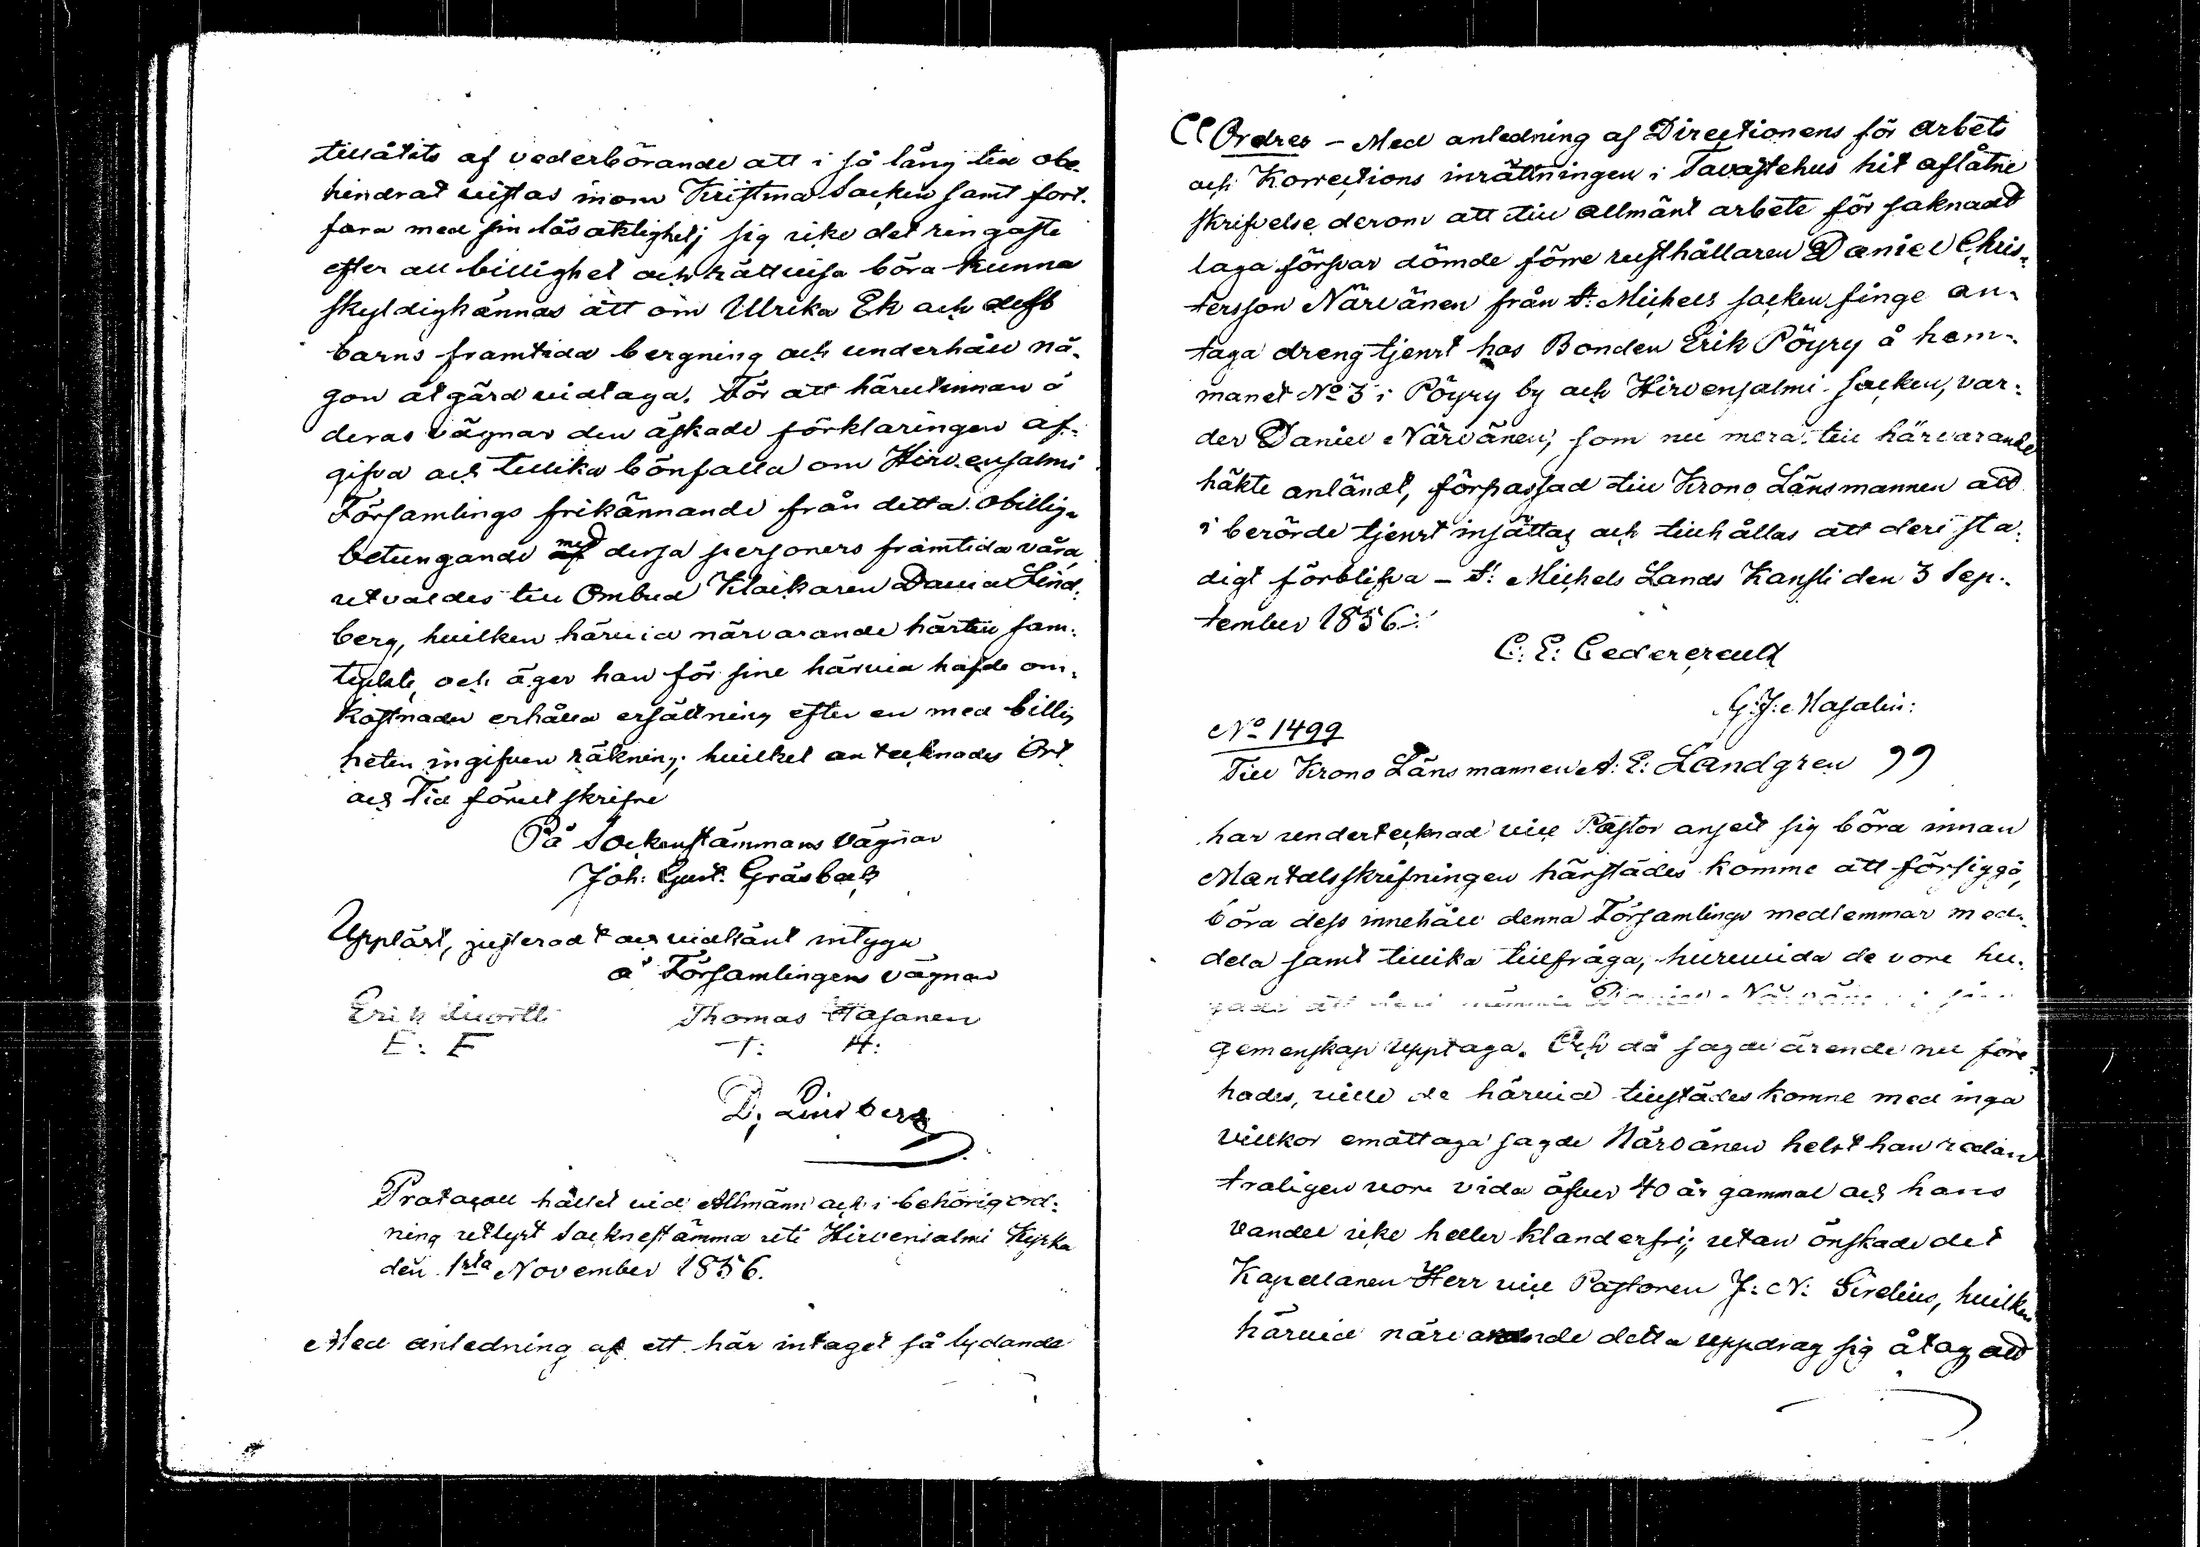 tillåtits af vederbörande att i så lång tid obe-
hindrat vistas inom Kristina Socken samt fort-
fara med sin lösaktighet; sig icke det ringaste
efter all billighet och rättvisa böra kunna
skyldigkännas att om Ulrika Ek och dess
barns framtida bergning och underhåll nå-
gon åtgärd vidtaga. För att härutinnan å
deras vägnar den äskade förklaringen af-
gifva och tillika bönfalla om Hirvensalmi
Församlings frikännande från detta obillig-
betungande med dessa personers framtida vård
utvaldes till Ombud Klockaren David Lind-
berg, hvilken härvid närvarande härtill sam-
tyckte, och äger han för sine härvid hafde om-
kostnader erhålla ersättning efter en med billig
heten ingifven räkning; hvilket antecknades Ort
och Tid förutskrifne
På Sockenstämmans vägnar
Joh: Gust: Gråsbeck
Uppläst, justeradt och vidkänt intyga
å Församlingens vägnar
Erik Thomas Hasanen
E: T: H:
D: Lindberg
Protocoll hållet vid Allmänn och i behörig ord-
ning utlyst Socknestämma uti Hirvensalmi Kyrka
den 1sta November 1856.
Med anledning af ett här intaget så lydande
"Ordres – Med anledning af Directionens för arbets
och Korrections inrättningen i Tavastehus hit aflåtne
skrifvelse derom att till allmänt arbete för saknadt
laga försvar dömde förre rusthållaren Daniel Chris-
tersson Närvänen från St. Michels socken finge an-
taga drengtjenst hos Bonden Erik Pöyry å hem-
manet No 3 i Pöyry by och Hirvensalmi socken, var-
der Daniel Närvänen, som nu mera till härvarande
häkte anländt, förpassad till Krono Länsmannen att
i berörde tjenst insättas och tillhållas att deri sta-
digt förblifva – St: Michels Lands Kansli den 3 Sep-
tember 1856:
C: E: Cedercreutz
G: J: Masalin:
No 1499
Till Krono Länsmannen A: E: Landgren "
har undertecknad vice Pastor ansett sig böra innan
Mantalsskrifningen härstädes komme att försiggå,
böra dess innehåll denna Församlings medlemmar med-
dela samt tillika tillfråga, huruvida de vore hu-
gade att Daniel Närvänen i
gemenskap upptaga. Och då sagde ärende nu före-
hades, ville de härvid tillstädes komne med inga
villkor emottaga sagde Närvänen helst han redan
troligen vore vida öfver 40 år gammal och hans
vandel icke heller klanderfri; utan önskade det
Kapellanen Herr vice Pastoren J: N: Sirelius, hvilken
härvid närvarande detta uppdrag sig åtog att